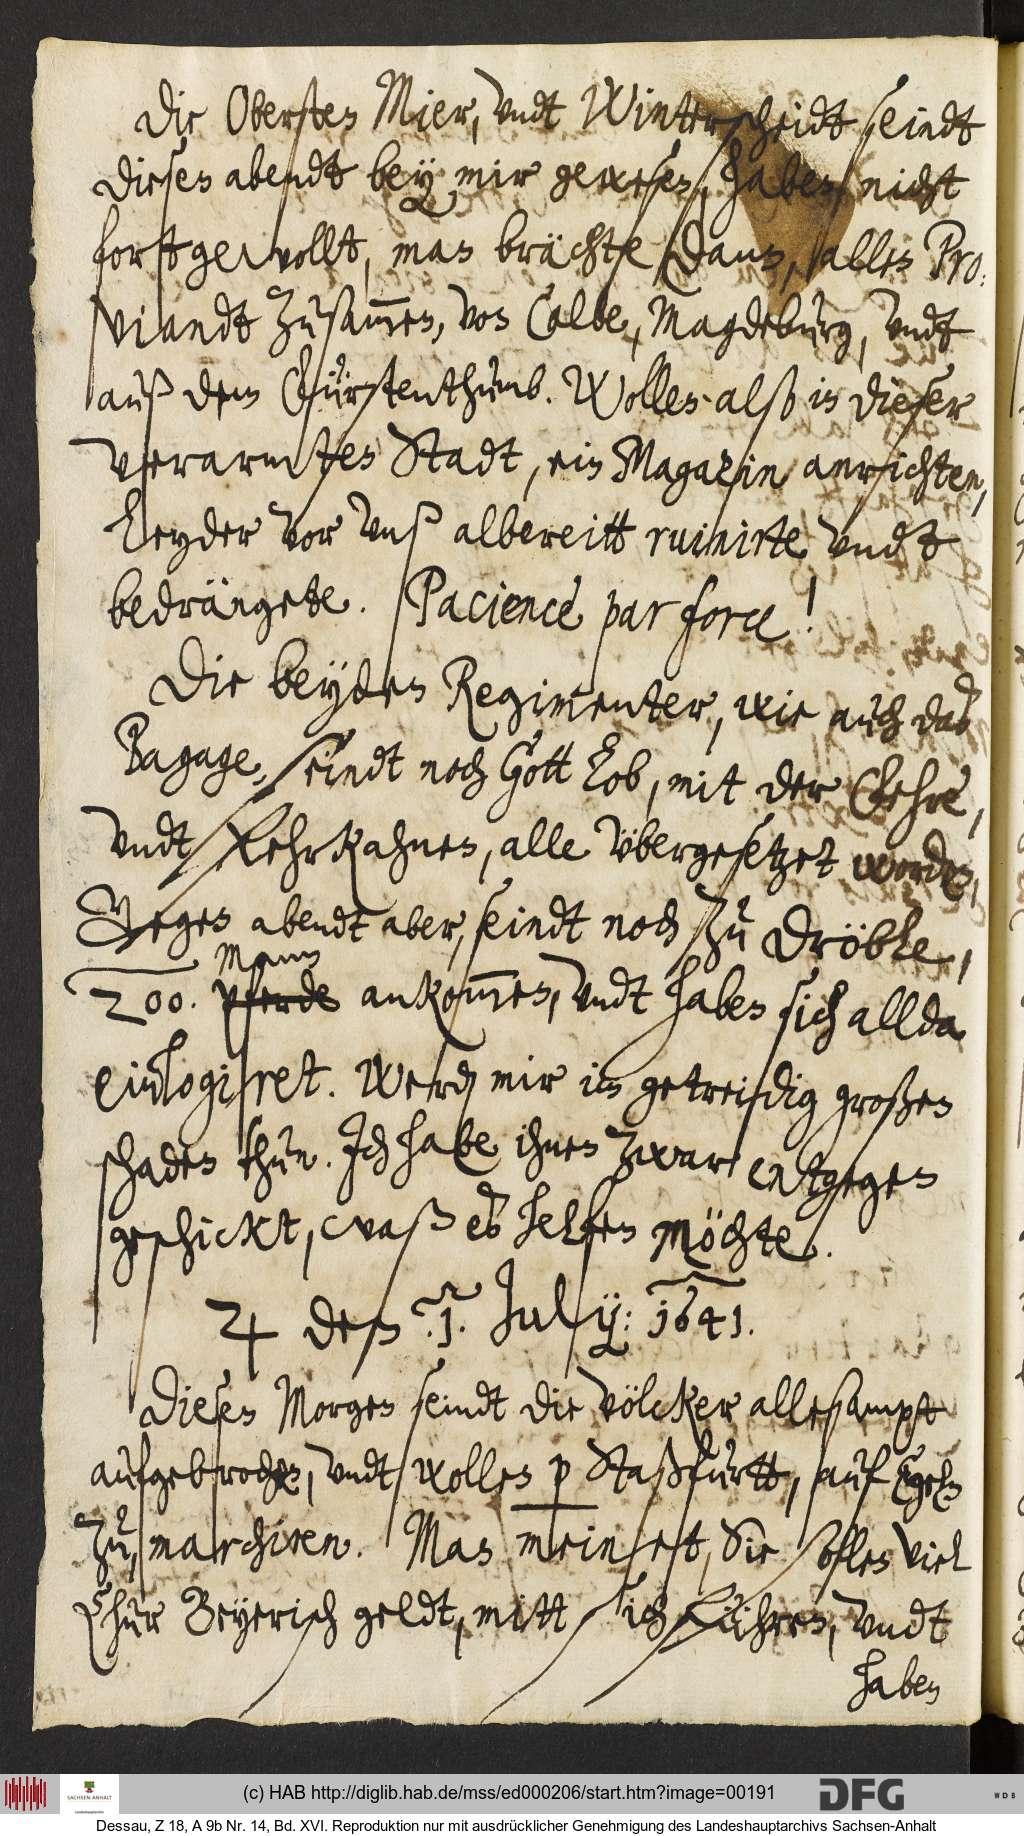 Die Obersten Mier, vndt Winterscheidt seindt
diesen abendt bey mir gewesen, haben nicht
fortgewollt, man brächte dann, alles Pro¬
viandt zusammen, von Calbe, Magdeburg, vndt
auß dem Fürstenthumb. Wollen alß in dieser
verarmten Stadt, ein Magazin anrichten,
leyder vor vnß albereitt ruinirte vndt
bedrängete. Pacience par force!
Die beyden Regimenter, wie auch das
Bagage, seindt noch Gott lob, mit der Fehre,
vndt Fehrkahnen, alle vbergesetzet worden,
Gegen abendt aber, seindt noch zu Dröbke,
Mann
200. pferde ankommen, vndt haben sich allda
einlogiret. Werden mir im getreidig großen
schaden thun. Ich habe ihnen zwar entgegen
geschickt, waß es helfen möchte.
♃ den .1. July: 1641.
Diesen Morgen seindt die völcker allesampt
aufgebrochen, vndt wollen p Staßfurtt, auf Egeln
zu, marchiren. Man meinet, Sie sollen viel
Chur Beyerisch geldt, mitt sich führen, vndt
haben
(c) HAB http://diglib.hab.de/mss/ed000206/start.htm?image=00191
SACHSEN-ANHALT
Landeshauptarchiv
DFG
WDB
Dessau, Z 18, A 9b Nr. 14, Bd. XVI. Reproduktion nur mit ausdrücklicher Genehmigung des Landeshauptarchivs Sachsen-Anhalt